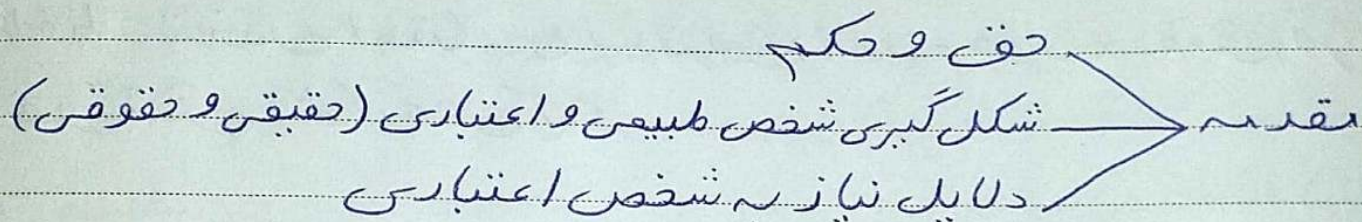 حق و حکم
مقدمه شکل گیری شخص طبیعی و اعتباری (حقیقی و حقوقی)
دلایل نیاز به شخص اعتباری